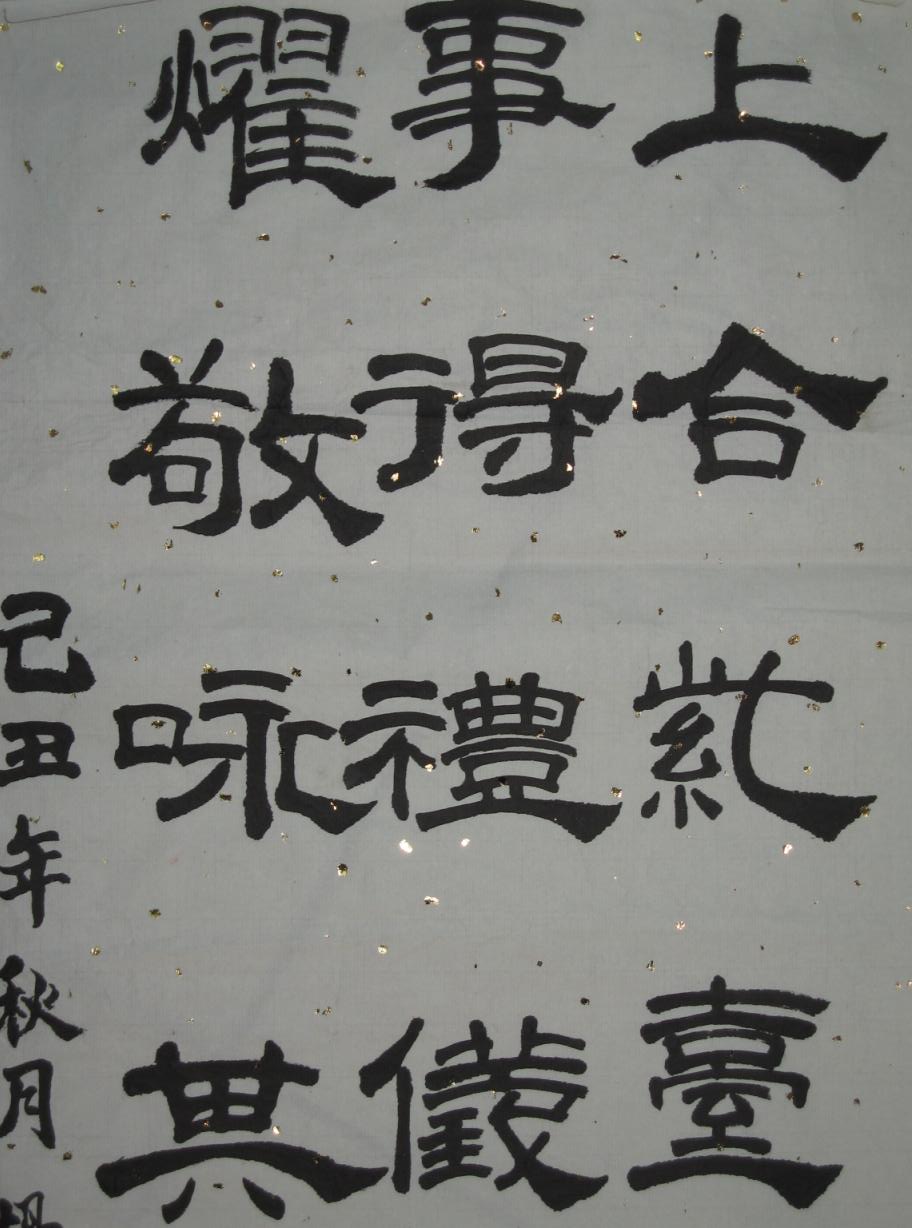 上合紫臺
事得禮儀
燿敬咏其
己丑年秋月